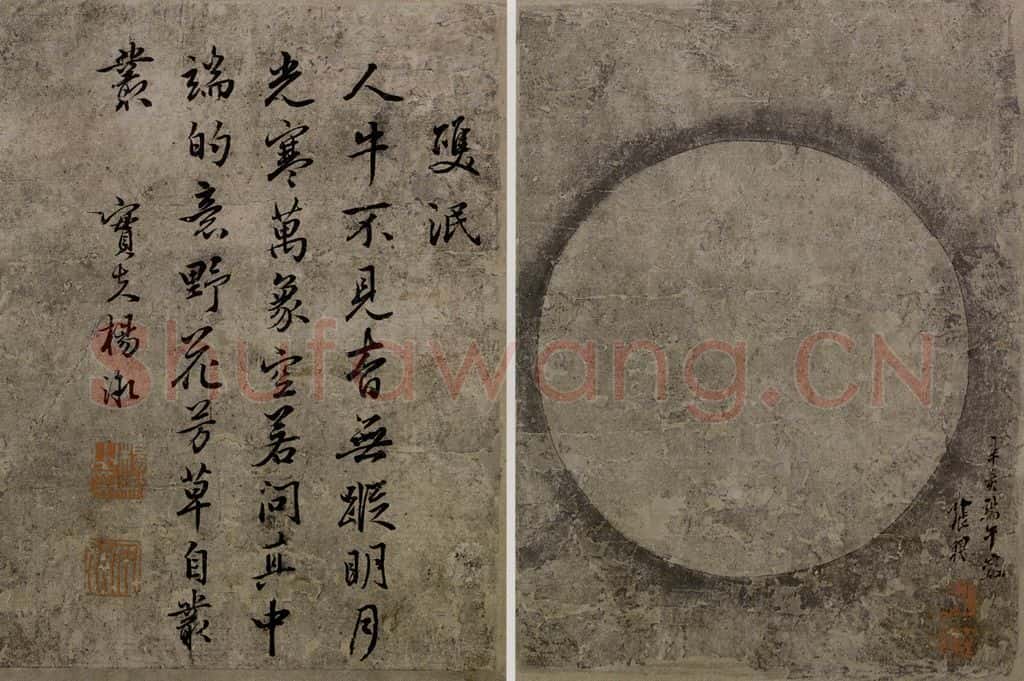 雙泯
人牛不見杳無蹤明月
光寒萬象空若問其中
端的意野花芳草自叢
叢
楊
端午
Shufawang.CN